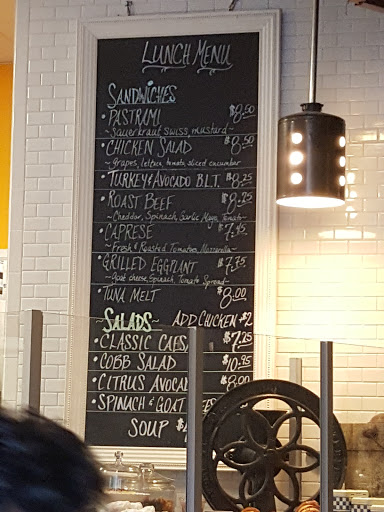 LUNCH MENU
SANDWICHES
• PASTRAMI $8.50
~ Sauerkraut, swiss, mustard ~
• CHICKEN SALAD $8.50
~ grapes, lettuce, tomato, sliced cucumber
• TURKEY & AVOCADO B.L.T. $8.25
• ROAST BEEF $8.25
~ Cheddar, Spinach, Garlic Mayo, Tomato ~
• CAPRESE $7.45
~ Fresh & Roasted Tomatoes, Mozzarella ~
• GRILLED EGGPLANT $7.35
~ Goat cheese, Spinach, Tomato Spread ~
• TUNA MELT $8.00
SALADS ~ ADD CHICKEN $2
• CLASSIC CAESA $7.25
• COBB SALAD $10.95
• CITRUS AVOCAD $8.00
• SPINACH & GOAT
SOUP